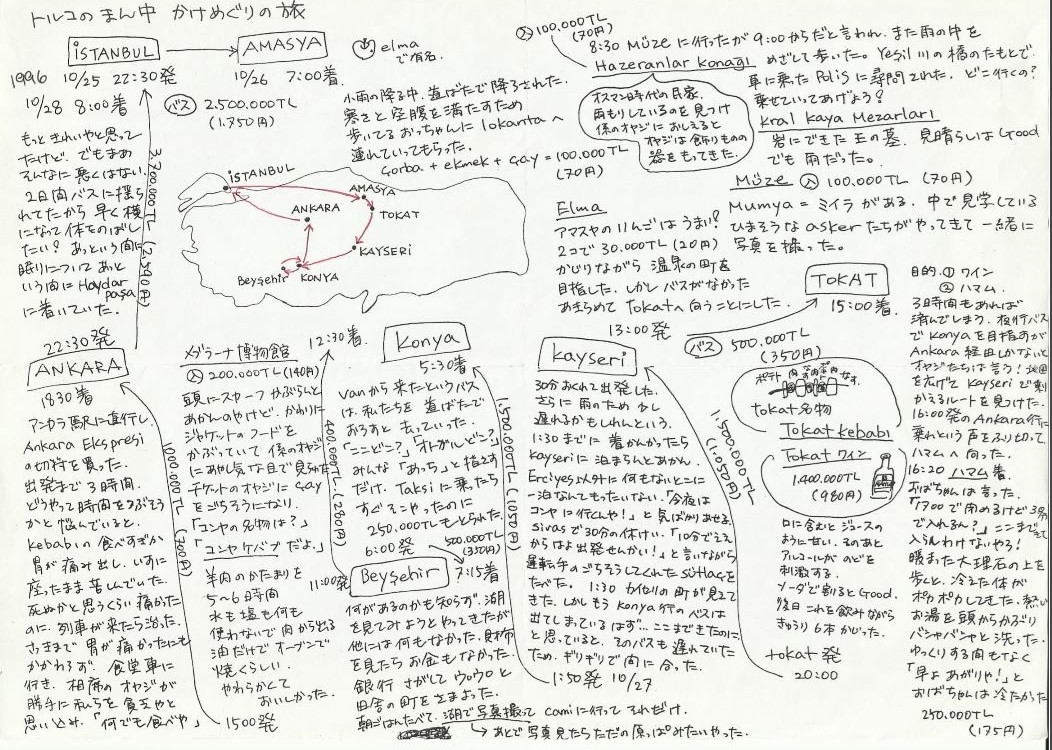 トルコのまん中 かけめぐりの旅
İSTANBUL
AMASYA
1996 10/25 22:30発
10/26 7:00着
10/28 8:00着
バス 2.500.000TL
(1.750円)
elma
で有名。
小雨の降る中、道ばたで降ろされた。
寒さと空腹を満たすため
歩いてるおっちゃんに lokantaへ
連れていってもらった。
çorba + ekmek + çay = 100.000TL
(70円)
もっときれいやと思って
たけど。でもまあ
そんなに悪くはない。
2日間バスに揺ら
れてたから早く横
になって体をのばし
たい? あっという間に
眠りについて あっと
いう間に Haydar
paşa
に着いていた。
3.700.000TL (2.590円)
İSTANBUL
AMASYA
TOKAT
ANKARA
KAYSERi
Beyşehir
KONYA
入 100.000TL
(70円)
8:30 Müze に行ったが 9:00からだと言われ、また雨の中を
Hazeranlar Konağı めざして歩いた。Yeşil 川の橋のたもとで、
車に乗った Polis に尋問された。どこ行くの?
乗せていってあげよう?
オスマン時代の民家。
雨もりしているのを見つけ
係のオヤジにおしえると
オヤジは飾りものの
器をもってきた。
Kral Kaya Mezarları
岩にできた王の墓。見晴らしはGood
でも雨だった。
Müze 入 100.000TL (70円)
Mumya = ミイラがある。中で見学している
ひまそうな askerたちがやってきて一緒に
写真を撮った。
Elma
アマスヤのりんごはうまい?
2コで 30.000TL (20円)
かじりながら 温泉の町を
目指した。しかしバスがなかった
あきらめて Tokatへ向うことにした。
13:00発
TOKAT
15:00着
バス 500.000TL
(350円)
目的. ① ワイン
② ハマム.
3時間もあれば
済んでしまう。夜行バス
で Konya を目指すが
Ankara 経由しかないと
オヤジたちは言う! 地図
を広げて Kayseri で乗り
かえるルートを見つけた。
16:00発の Ankara行に
乗れという声をふり切って
ハマムへ向った。
16:20 ハマム着
おばちゃんは言った。
「17:00で閉めるけど
で入れるん?」ここまで来て
入らんわけないやろ!
暖まった大理石の上を
歩くと、冷えた体が
ポカポカしてきた。熱い
お湯を頭からかぶり
バシャバシャと洗った。
ゆっくりする間もなく
「早よあがりや!」と
おばちゃんは冷たかった
250.000TL
(175円)
ポテト 肉 なす
tokat名物
Tokat kebabı
Tokat ワイン
1.400.000TL
(980円)
口に含むとジュースの
ように甘い。そのあと
アルコールが のどを
刺激する。
ソーダで割ると Good.
後日これを飲みながら
きゅうり 6本かじった。
tokat 発
20:00
1.500.000TL
(1.050円)
kayseri
30分おくれて出発した。
さらに雨のため少し
遅れるかもしれんという。
1:30までに着かんかったら
Kayseriに泊まらんとあかん。
Erciyes以外に何もないとこに
一泊なんてもったいない。「今夜は
コンヤに行くんや!」と気ばかりあせる。
Sivas で30分の休けい。「10分でええ
からはよ出発せんかい!」と言いながら
運転手のごちそうしてくれた sütlaç を
たべた。 1:30 カイセリの町が見えて
きた。しかしもう Konya行のバスは
出てしまっているはず… ここまできたのに
と思っていると、そのバスも遅れていた
ため、ギリギリで間に合った。
1:50発 10/27
1.500.000TL (1050円)
Konya
5:30着
Vanから来たというバス
は、私たちを道ばたで
おろすと去っていった。
「ここどこ?」「オトガルどこ?」
みんな「あっち」と指さす
だけ。Taksiに乗ったら
すぐそこやったのに
250.000TLもとられた。
6:00発
500.000TL
(350円)
Beyşehir 7:15着
何があるのかも知らず。湖
を見てみようとやってきたが
他には何もなかった。
を見たらお金もなかった。
銀行 さがしてウロウロと
田舎の町をさまよった。
朝ごはんたべて、湖で写真撮って camiに行ってそれだけ。
→ あとで写真見たらただの原っぱみたいやった。
11:00発
400.000TL (280円)
12:30着
メヴラーナ博物館
入 200.000TL (140円)
頭にスカーフやぶらんと
あかんのやけど、かわりに
ジャケットのフードを
かぶっていて 係のオヤジ
にあやし気な目で見られた
チケットのオヤジに çay
をごちそうになり、
「コンヤの名物は?」
「コンヤケバブだよ。」
羊肉のかたまりを
5〜6時間
水も塩も何も
使わないで肉から出る
油だけでオーブンで
焼くらしい。
やわらかくて
おいしかった。
15:00発
1000.000TL (700円)
22:30発
ANKARA
18:30着
アンカラ駅に直行し、
Ankara Ekspresi
の切符を買った。
出発まで3時間。
どうやって時間をつぶそう
かと悩んでいると、
Kebabıの食べすぎか
胃が痛み出し、いすに
座ったまま苦しんでいた。
死ぬかと思うくらい痛かった
のに、列車が来たら治った。
さっきまで胃が痛かったにも
かかわらず、食堂車に
行き、相席のオヤジが
勝手に私らを貧乏やと
思い込み、「何でも食べや」